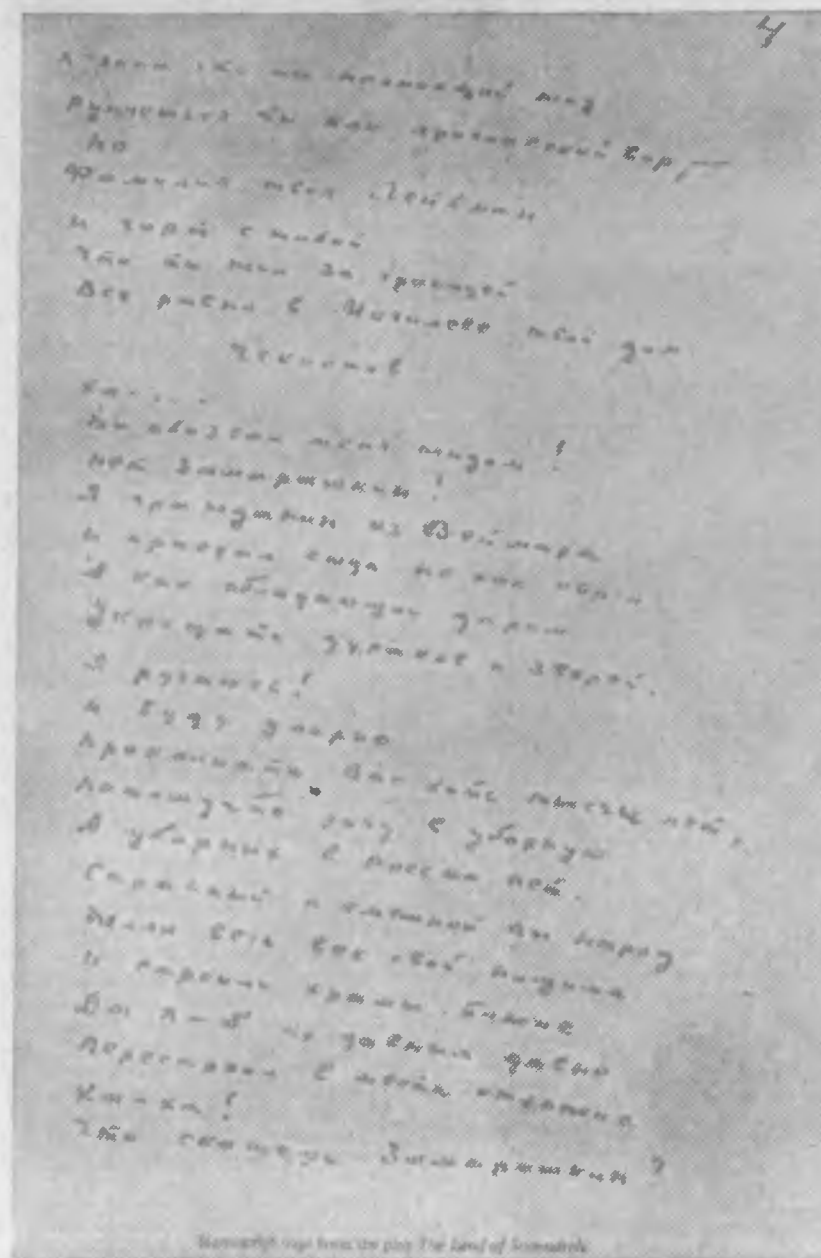 4
Я знаю что ты настоящий жид
Ругаешься ты как ярославский вор
Но
Фамилия твоя Лейбман
И черт с тобой
Что ты жил за границей
Все равно в Могилеве твой дом
Чекистов
Ха-....
Ты обозвал меня жидом!
Нет Замарашкин!
Я гражданин из Веймара
И приехал сюда не как еврей
А как обладающий даром
Укрощать дураков и зверей.
Я ругаюсь!
И буду упорно
Проклинать вас хоть тысячи лет,
Потому что хочу в уборную
А уборных в России нет.
Странный и смешной вы народ
Жили весь век свой нищими
И строили храмы божие
Да я б их
Перестроил в места отхожие
Ха-ха!
Что скажешь Замарашкин?
Manuscript page from the play The Land of Scoundrels